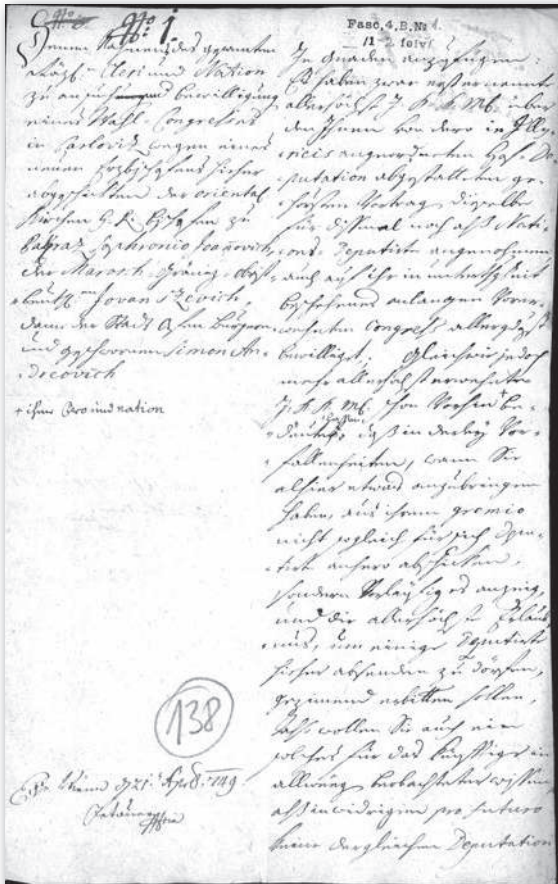 No: 1.
Fasc. 4, B, №
11 - 2 folvi
Denen Nahmens des gesamten
Räzl. Cleri und Nation
zu ansuch und bewilligung
eines Wahl-Congressus
in Carlovitz wegen eines
neuen Erzbischofens hierher
abgeschickten der oriental
Kirchen G. R. Bischofen zu
Bakraz Sophronio Joanovich,
der Marosch-Gränz-Obrist
leutt. Jovan Szevich,
dann der Stadt Ofen Burgern
und geschwornen Simon An-
dreovich
+ ihrem Clero und nation
In Gnaden anzufügen:
Es haben zwar erst ernannte
allerhöchst J. K. K. Mt. über
den Ihnen von dero in Illy-
ricis angeordneten Hof-De-
putation abgestatteten ge-
horsten Vortrag, dieselbe
für dißmal noch alß Nati-
ons-Deputirte angenommen,
auch auf ihr in unterthgkeit
beschehenes anlangen
Congress allergdgst
bewilliget; Gleichwie jedoch
mehr allerhöchst erwehnte
J. K. K. Mt. schon Vorhin be-
deutet, daß in derley Vor-
fallenheiten, wann Sie
alhier etwas anzubringen
haben, aus ihrem gremio
nicht sogleich für sich Depu-
tirte anhero abschicken,
sondern Vorläuffig es anzeig,
und die allerhöchste Erlaub-
nus, um einige Deputirte
hieher absenden zu dörfen,
gezimend erbitten sollen,
Alß wollen Sie auch ein
solches für das künfftige in
allweeg beobachtet wissen,
alß in widrigen pro futuro
keine dergleichen Deputation
138
Wienn d. 21. Apr. 149